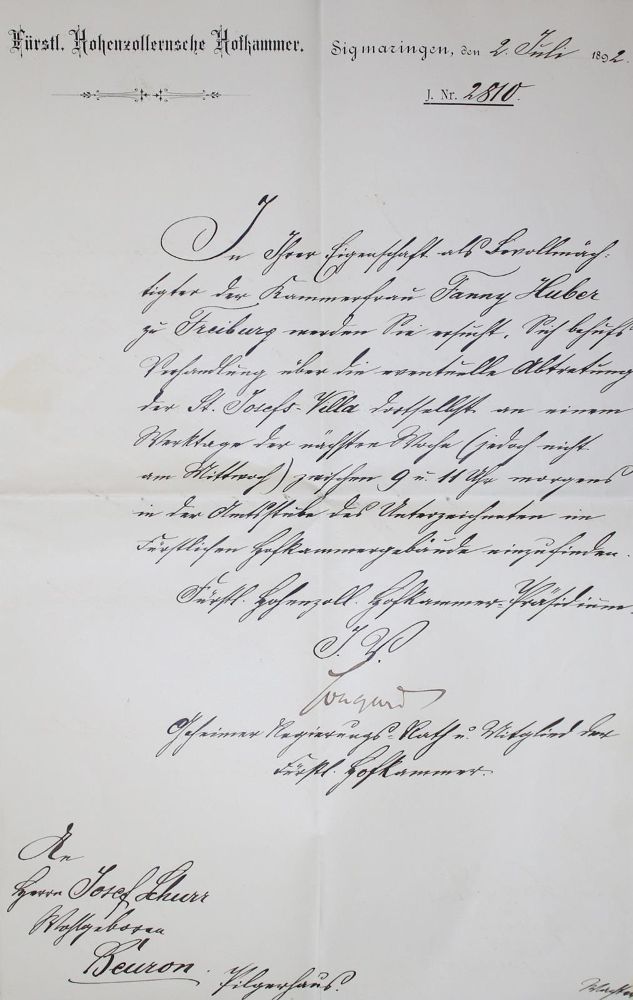 Fürstl. Hohenzollernsche Hofkammer.
Sigmaringen, den 2. Juli 1892.
J. Nr. 2810.
In Ihrer Eigenschaft als Bevollmäch-
tigter der Kammerfrau Fanny Huber
zu Freiburg werden Sie ersucht, Sich behufs
Verhandlung über die eventuelle Abtretung
der St. Josefs-Villa dortselbst an einem
Werktage der nächsten Woche (jedoch nicht
am Mittwoch) zwischen 9 u. 11 Uhr morgens
in der Amtsstube des Unterzeichneten im
Fürstlichen Hofkammergebäude einzufinden.
Fürstl. Hohenzoll. Hofkammer-Präsidium.
I. V.
Longard
Geheimer Regierungs-Rath u. Mitglied der
Fürstl. Hofkammer.
An
Herrn Josef Schurr
Wohlgeboren
Beuron.
Pilgerhaus